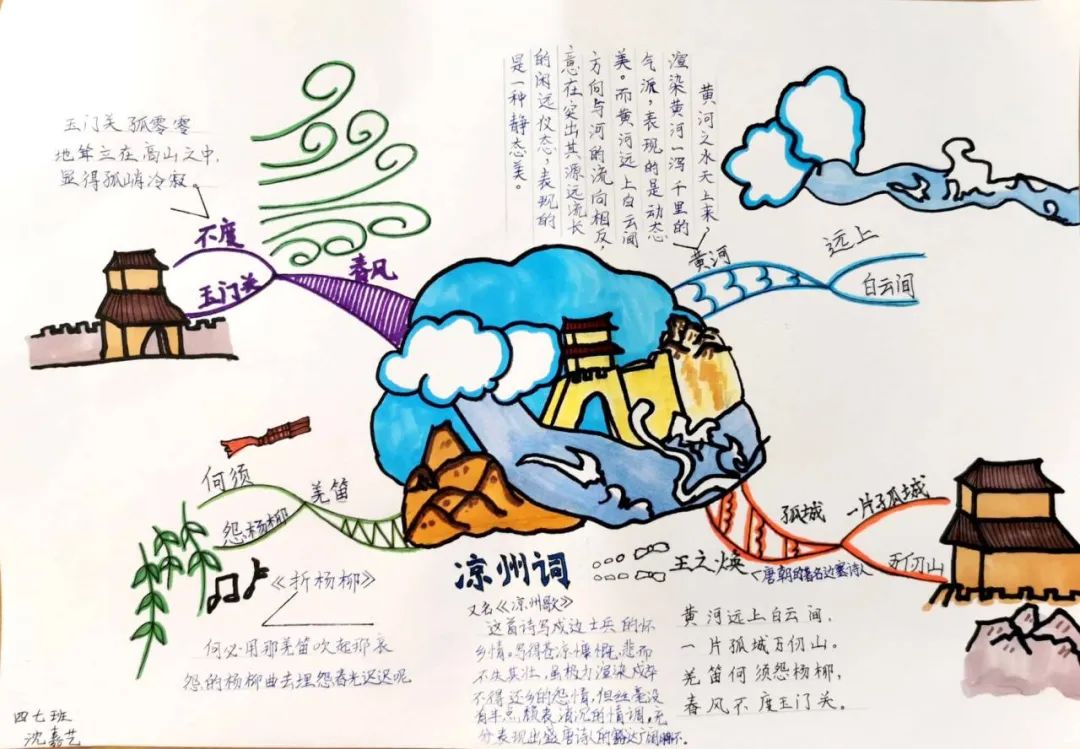 玉门关孤零零
地耸立在高山之中，
显得孤峭冷寂。
不度
玉门关
春风
黄河之水天上来，
渲染黄河一泻千里的
气派，表现的是动态
美。而黄河远上白云间
方向与河的流向相反，
意在突出其源远流长
的闲远仪态，表现的
是一种静态美。
黄河
远上
白云间
何须
怨杨柳
羌笛
《折杨柳》
何必用那羌笛吹起那哀
怨的杨柳曲去埋怨春光迟迟呢
孤城
一片孤城
万仞山
凉州词
王之焕
唐朝的著名边塞诗人
又名《凉州歌》
这首诗写戍边士兵的怀
乡情。写得苍凉慷慨，悲而
不失其壮，虽极力渲染戍卒
不得还乡的怨情，但丝毫没
有半点颓丧消沉的情调，充
分表现出盛唐诗人的豁达广阔胸怀。
黄河远上白云间，
一片孤城万仞山。
羌笛何须怨杨柳，
春风不度玉门关。
四七班
沈嘉艺